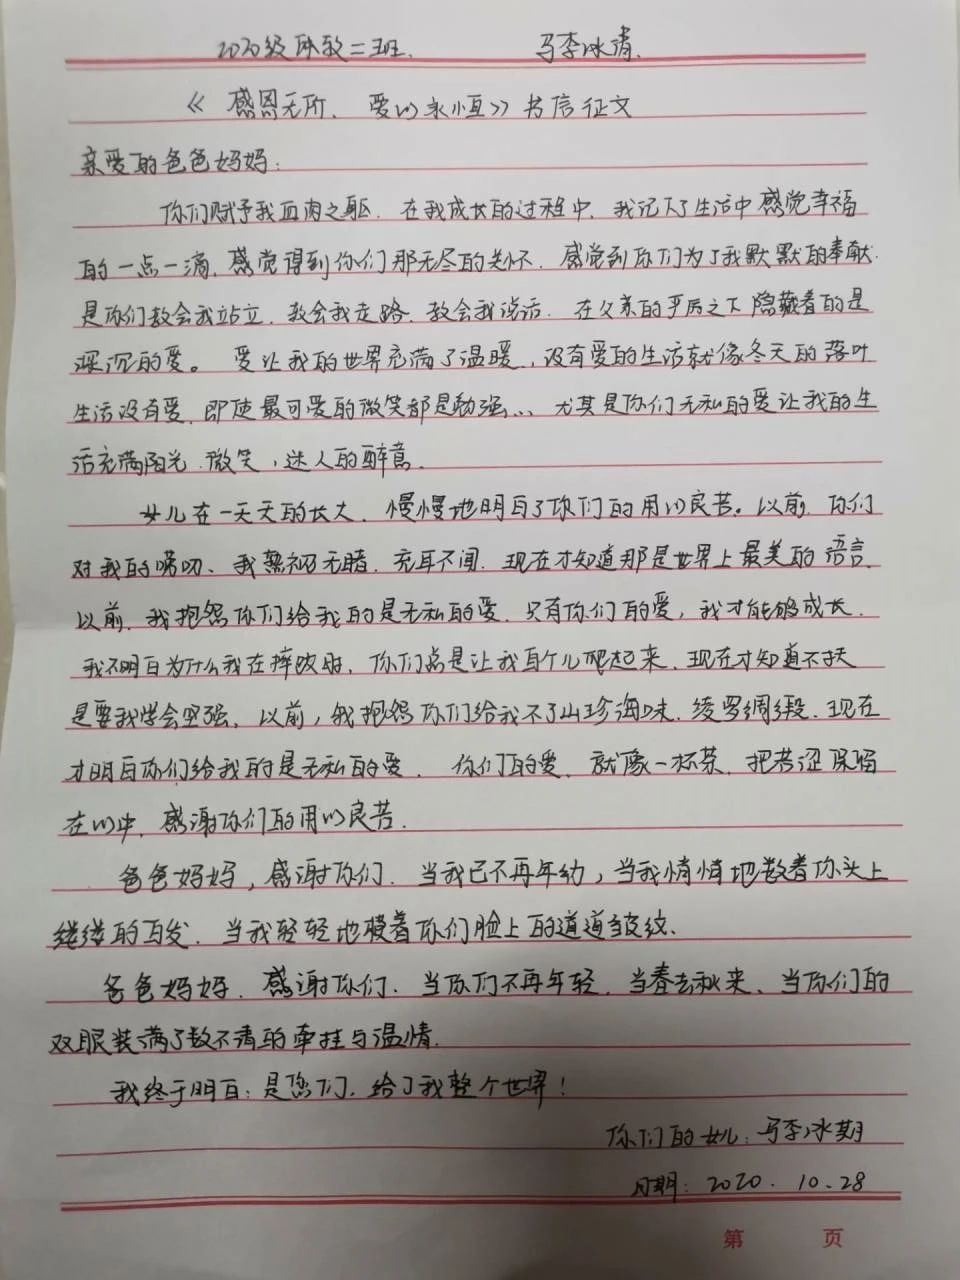 2020级体教二班. 马李冰清.
《感恩无所、爱心永恒》书信征文
亲爱的爸爸妈妈:
你们赋予我血肉之躯. 在我成长的过程中. 我记下了生活中感觉幸福
的一点一滴, 感觉得到你们那无尽的关怀. 感觉到你们为了我默默的奉献.
是你们教会我站立. 教会我走路. 教会我说话. 在父亲的平厉之下隐藏着的是
深沉的爱。 爱让我的世界充满了温暖, 没有爱的生活就像冬天的落叶
生活没有爱, 即使最可爱的微笑都是勉强... 尤其是你们无私的爱让我的生
活充满阳光. 微笑, 迷人的醉意.
女儿在一天天的长大, 慢慢地明白了你们的用心良苦。以前, 你们
对我的唠叨、我熟视无睹. 充耳不闻. 现在才知道那是世界上最美的语言.
以前, 我抱怨你们给我的是无私的爱. 只有你们的爱, 我才能够成长.
我不明白为什么我在摔跤时, 你们总是让我自个儿爬起来. 现在才知道不扶
是要我学会坚强. 以前, 我抱怨你们给我不了山珍海味. 绫罗绸缎. 现在
才明白你们给我的是无私的爱. 你们的爱, 就像一杯茶. 把苦涩保留
在心中. 感谢你们的用心良苦.
爸爸妈妈, 感谢你们. 当我已不再年幼, 当我悄悄地数着你头上
缕缕的白发. 当我轻轻地摸着你们脸上的道道皱纹.
爸爸妈妈. 感谢你们. 当你们不再年轻. 当春去秋来、当你们的
双眼装满了数不清的牵挂与温情.
我终于明白: 是您们, 给了我整个世界!
你们的女儿: 马李冰
日期: 2020. 10.28
第 页